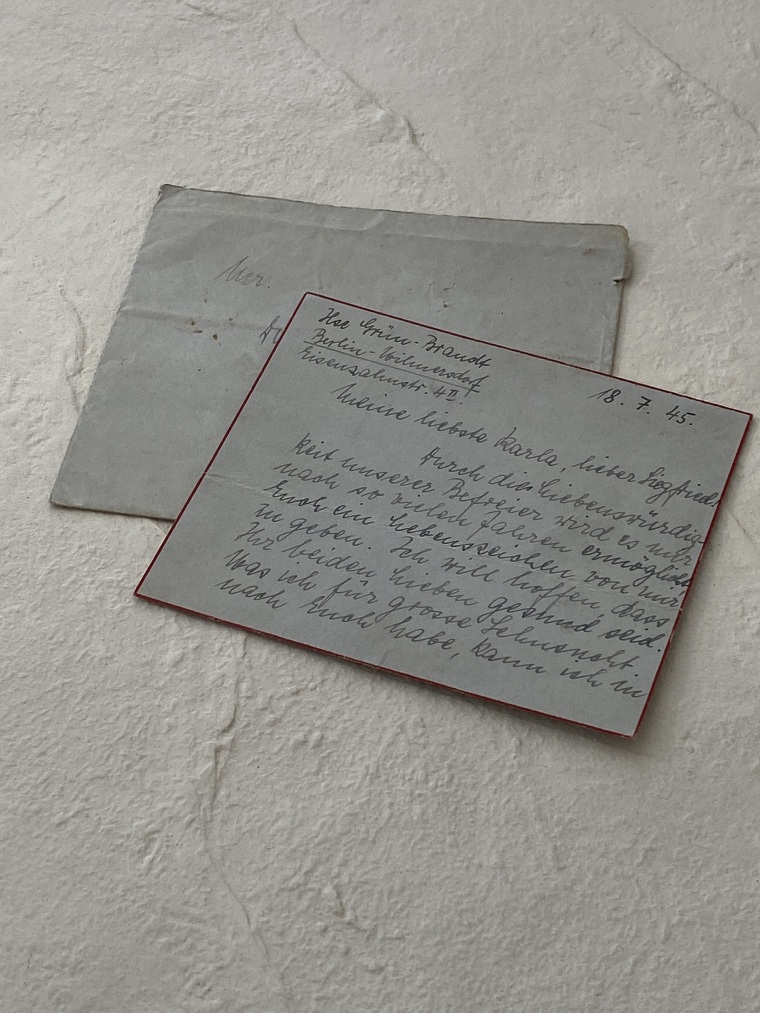 Mr.
Ilse Grün-Brandt
Berlin-Wilmersdorf
Eisenzahnstr. 4 II.
18. 7. 45.
Meine liebste Karla, lieber Siegfried!
Durch die Liebenswürdig-
keit unserer Befreier wird es mir
nach so vielen Jahren ermöglicht
Euch ein Lebenszeichen von mir
zu geben. Ich will hoffen, dass
Ihr beiden Lieben gesund seid.
Was ich für grosse Sehnsucht
nach Euch habe, kann ich in